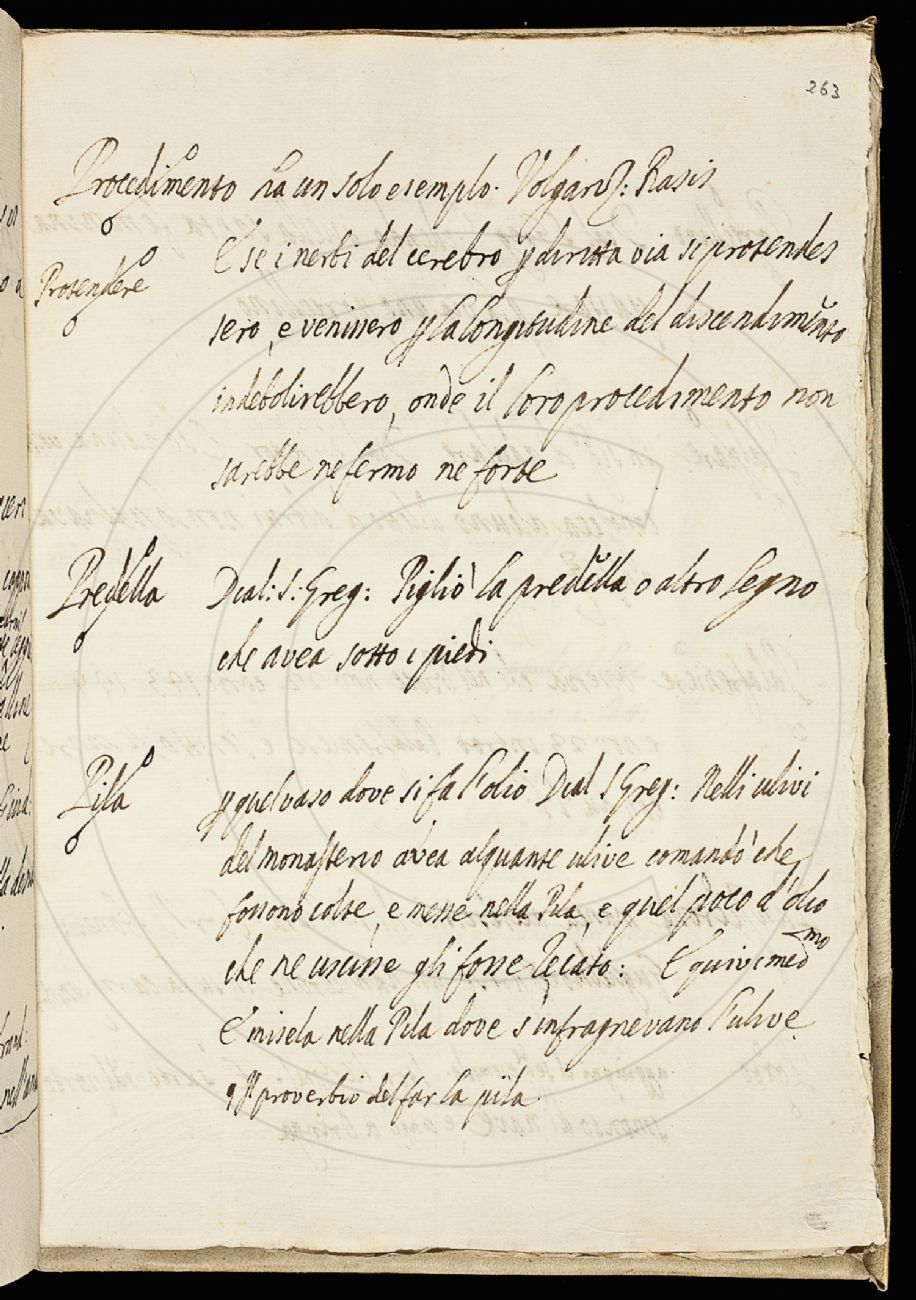 263
Procedimento ha un solo esemplo. Volgariz: Rasis
E se i nerbi del cerebro p diritta via si protendes
Protendere
sero, e venissero p la longitudine del discendimento
indebolirebbero, onde il loro procedimento non
sarebbe ne fermo ne forte
Predella Dial: S: Greg: Pigliò la predella o altro legno
che avea sotto i piedi
Pila p quel vaso dove si fa l'olio Dial S Greg: Nelli ulivi
del monasterio avea alquante ulive comandò che
fossono colte, e messe nella Pila, e quel poco d'olio
che ne uscisse gli fosse recato: E quivi med.mo
E misela nella Pila dove s'infragnevano l'ulive
proverbio del far la pila